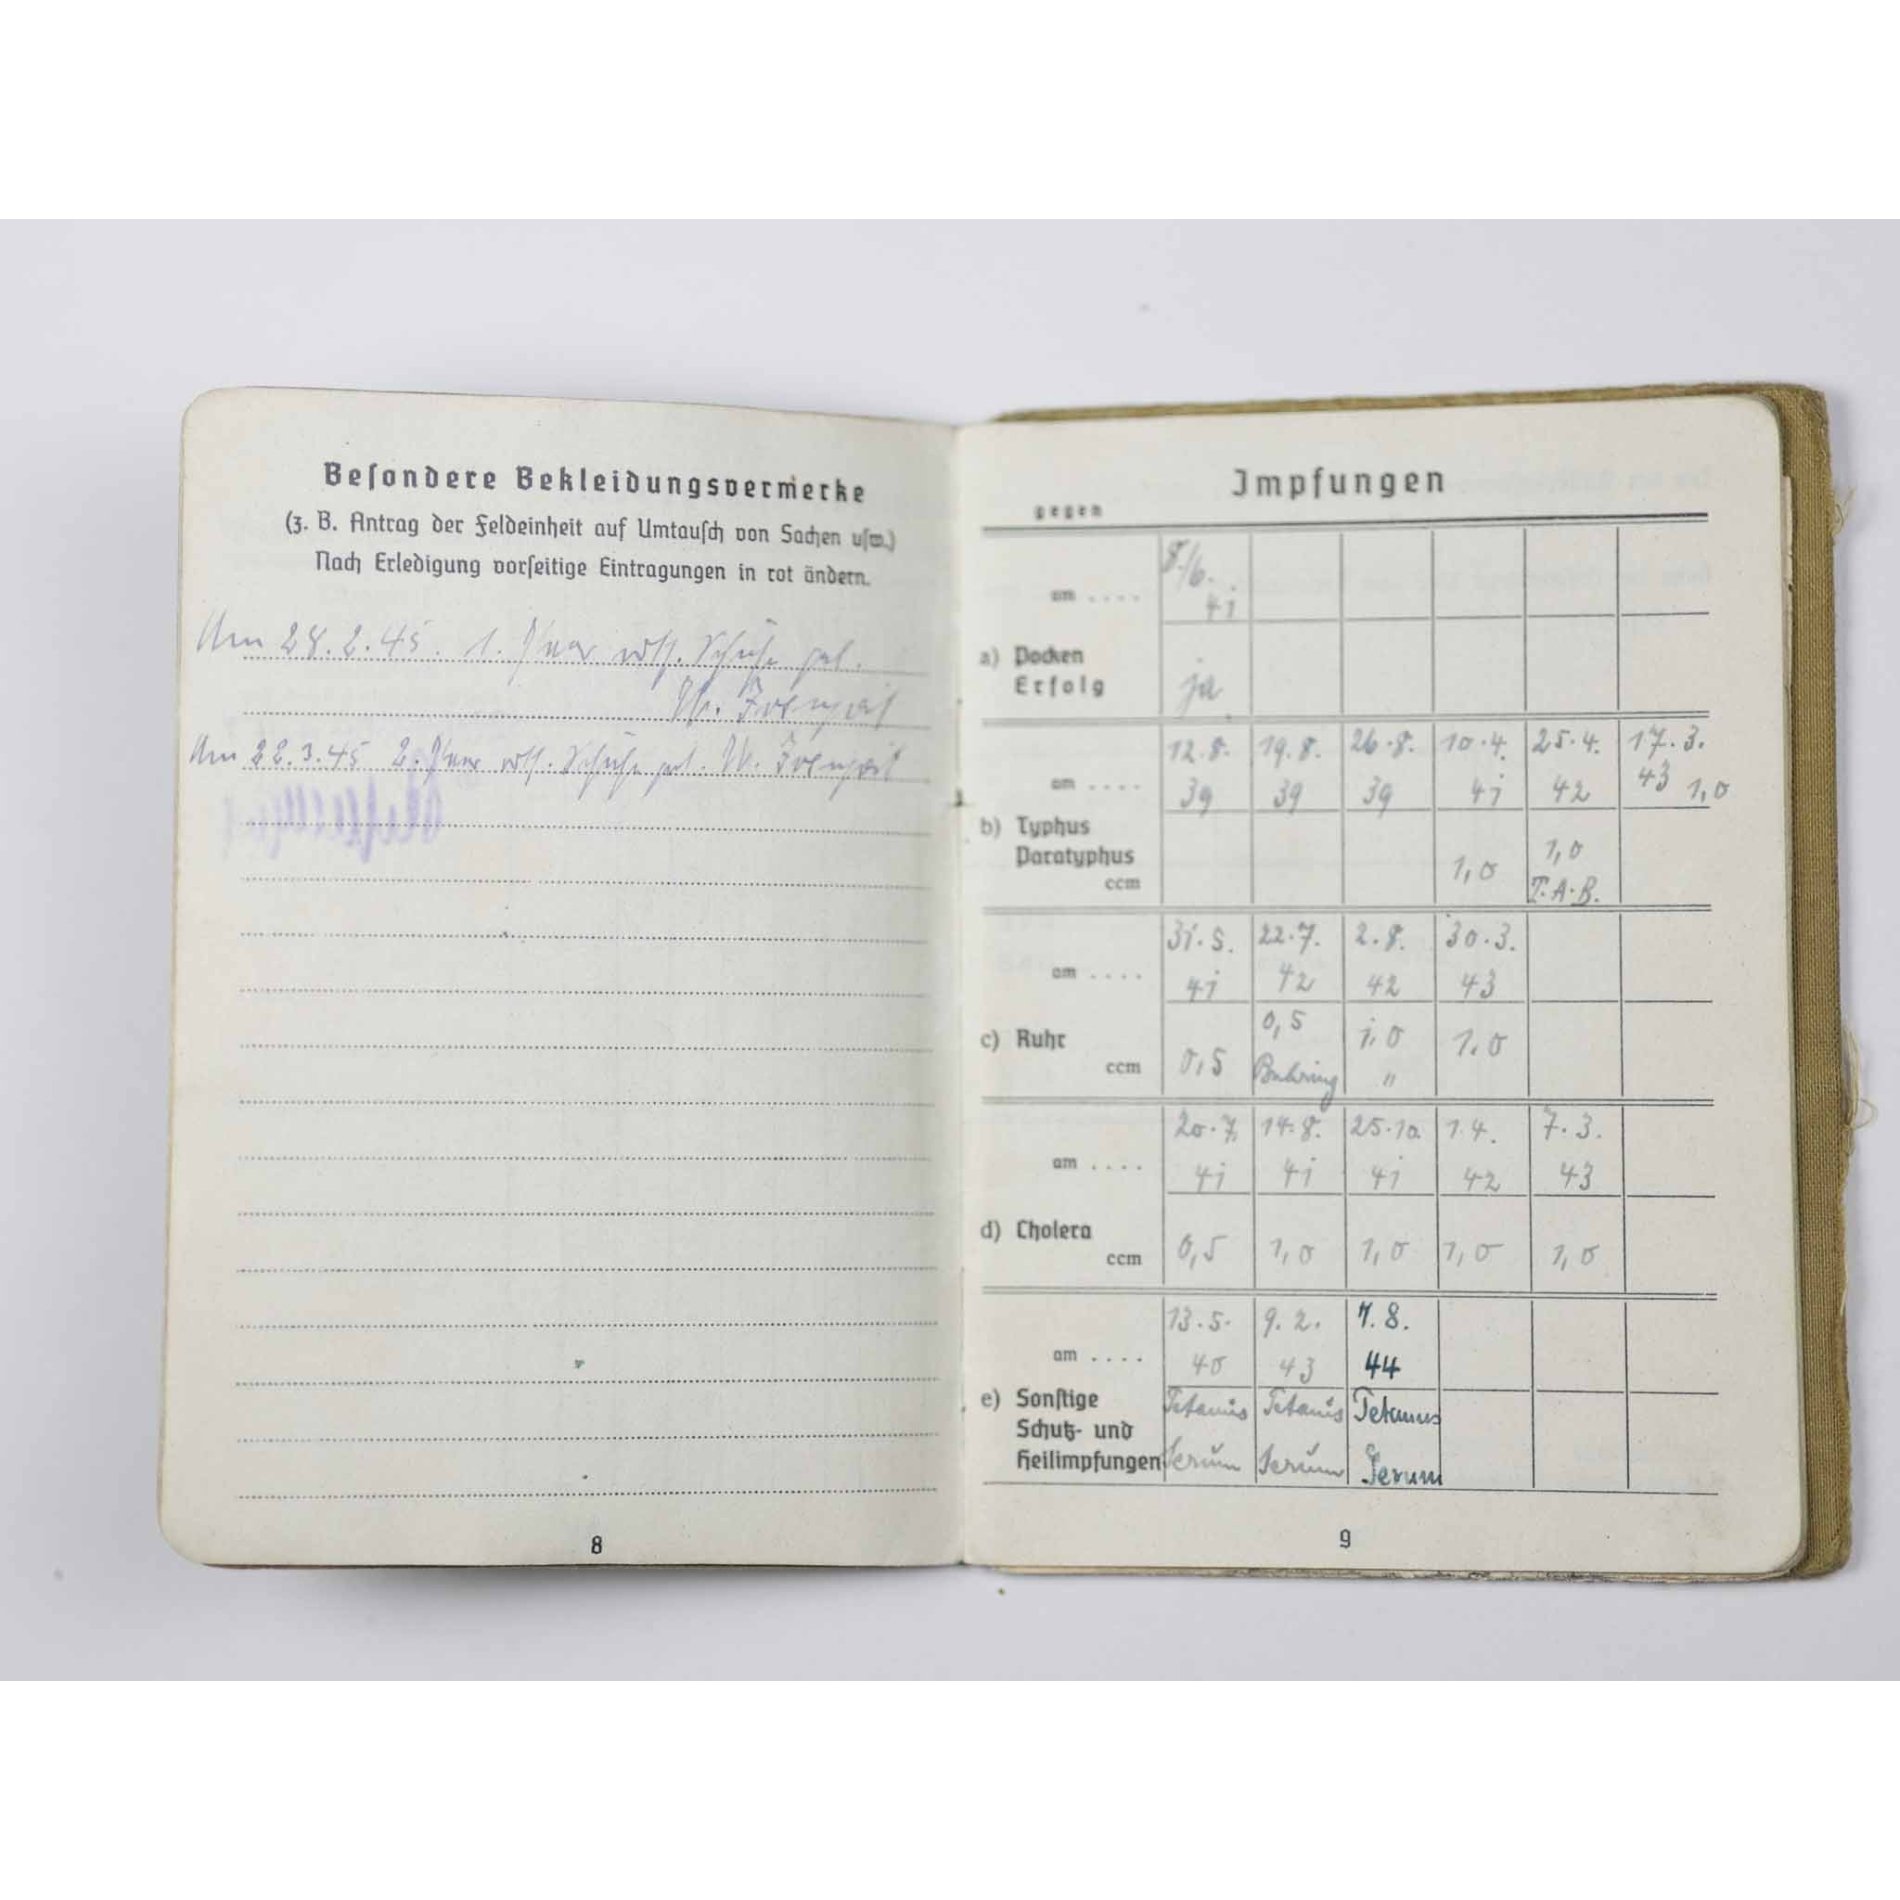 Beſondere Bekleidungsvermerke
(z. B. Antrag der Feldeinheit auf Umtauſch von Sachen uſw.)
Nach Erledigung vorſeitige Eintragungen in rot ändern.
Am 28.2.45. 1. Paar Schuhe
Am 22.3.45 2. Paar Schuhe
8
Impfungen
gegen
am .... 8./6. 41
a) Pocken
Erfolg ja
am .... 12.8. 39 19.8. 39 26.8. 39 10.4. 41 25.4. 42 17.3. 43 1,0
b) Typhus
Paratyphus
ccm 1,0 1,0 T.A.B.
am .... 31.5. 41 22.7. 42 2.8. 42 30.3. 43
c) Ruhr
ccm 0,5 0,5 Behring 1,0 " 1,0
am .... 20.7. 41 14.8. 41 25.10. 41 1.4. 42 7.3. 43
d) Cholera
ccm 0,5 1,0 1,0 1,0 1,0
am .... 13.5. 40 9.2. 43 7.8. 44
e) Sonſtige Tetanus Tetanus Tetanus
Schutz- und
Heilimpfungen Serum Serum Serum
9